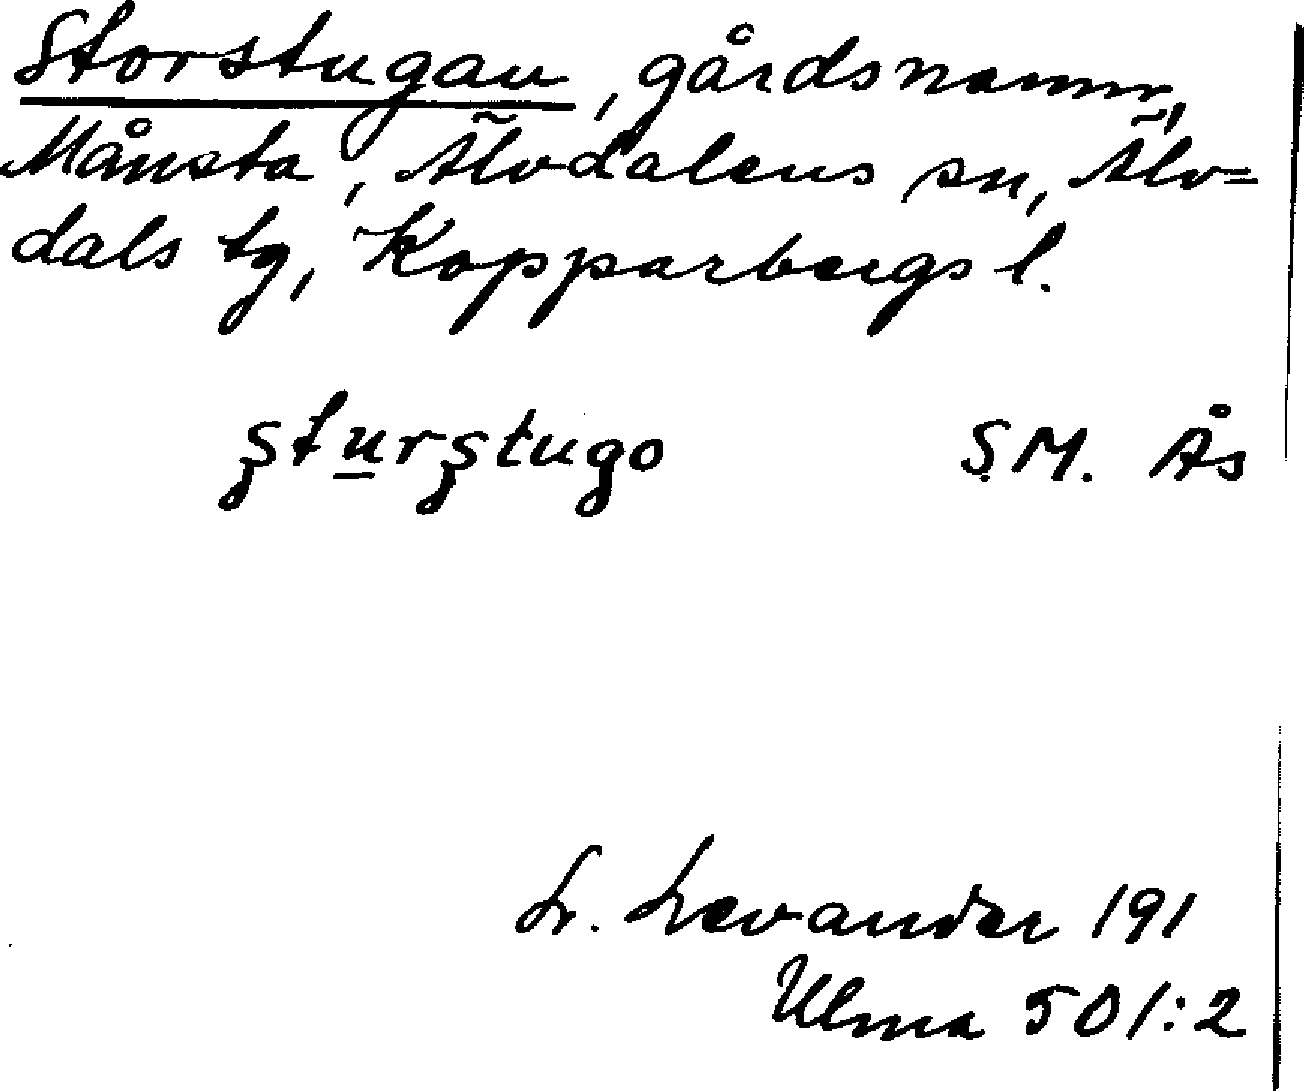 Storstugan, gårdsnamn,
Månsta, Älvdalens sn, Älv=
dals tg, Kopparbergs l.
şturştugo S.M. Ås
L. Levander 191
Ulma 501:2